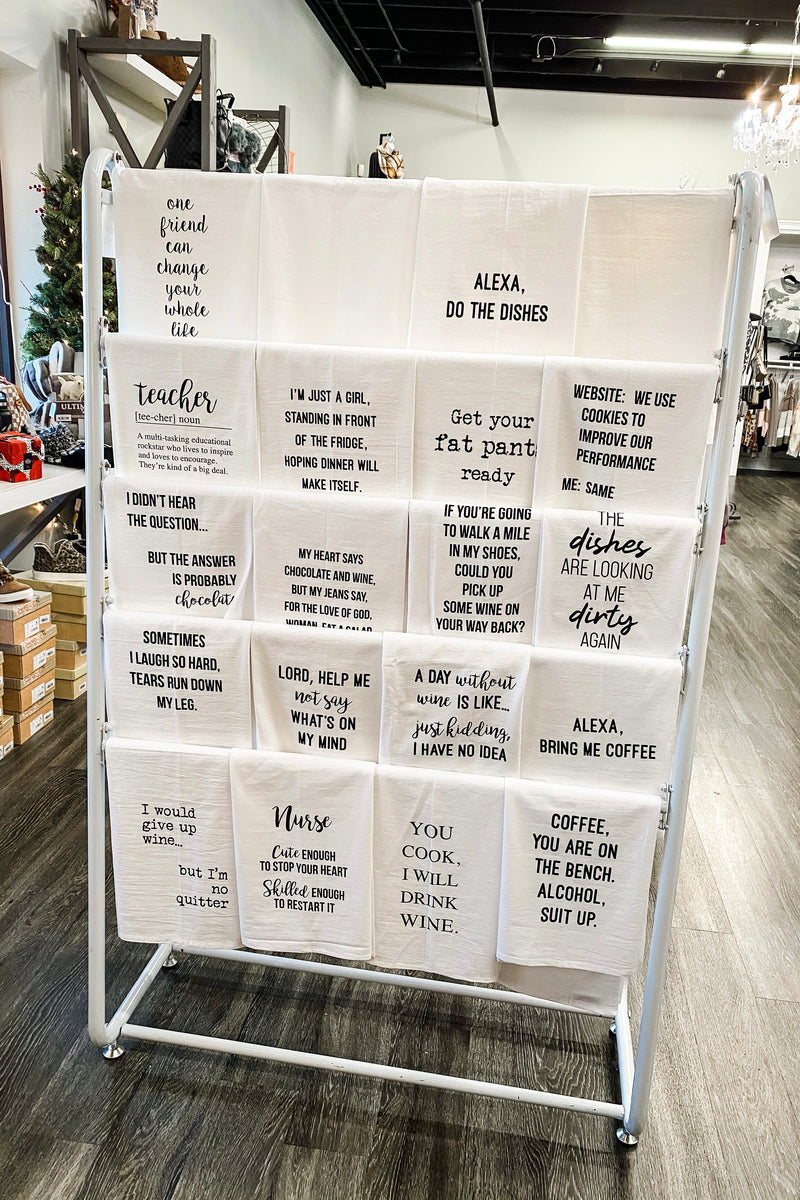 one
friend
can
change
your
whole
life
ALEXA,
DO THE DISHES
teacher
[tee-cher] noun
A multi-tasking educational
rockstar who lives to inspire
and loves to encourage.
They're kind of a big deal.
I'M JUST A GIRL,
STANDING IN FRONT
OF THE FRIDGE,
HOPING DINNER WILL
MAKE ITSELF.
Get your
fat pants
ready
WEBSITE: WE USE
COOKIES TO
IMPROVE OUR
PERFORMANCE
ME: SAME
I DIDN'T HEAR
THE QUESTION...
BUT THE ANSWER
IS PROBABLY
chocolate
MY HEART SAYS
CHOCOLATE AND WINE,
BUT MY JEANS SAY,
FOR THE LOVE OF GOD,
WOMAN, EAT A SALAD
IF YOU'RE GOING
TO WALK A MILE
IN MY SHOES,
COULD YOU
PICK UP
SOME WINE ON
YOUR WAY BACK?
THE
dishes
ARE LOOKING
AT ME
dirty
AGAIN
SOMETIMES
I LAUGH SO HARD,
TEARS RUN DOWN
MY LEG.
LORD, HELP ME
not say
WHAT'S ON
MY MIND
A DAY without
wine IS LIKE...
just kidding,
I HAVE NO IDEA
ALEXA,
BRING ME COFFEE
I would
give up
wine...
but I'm
no
quitter
Nurse
Cute ENOUGH
TO STOP YOUR HEART
Skilled ENOUGH
TO RESTART IT
YOU
COOK,
I WILL
DRINK
WINE.
COFFEE,
YOU ARE ON
THE BENCH.
ALCOHOL,
SUIT UP.